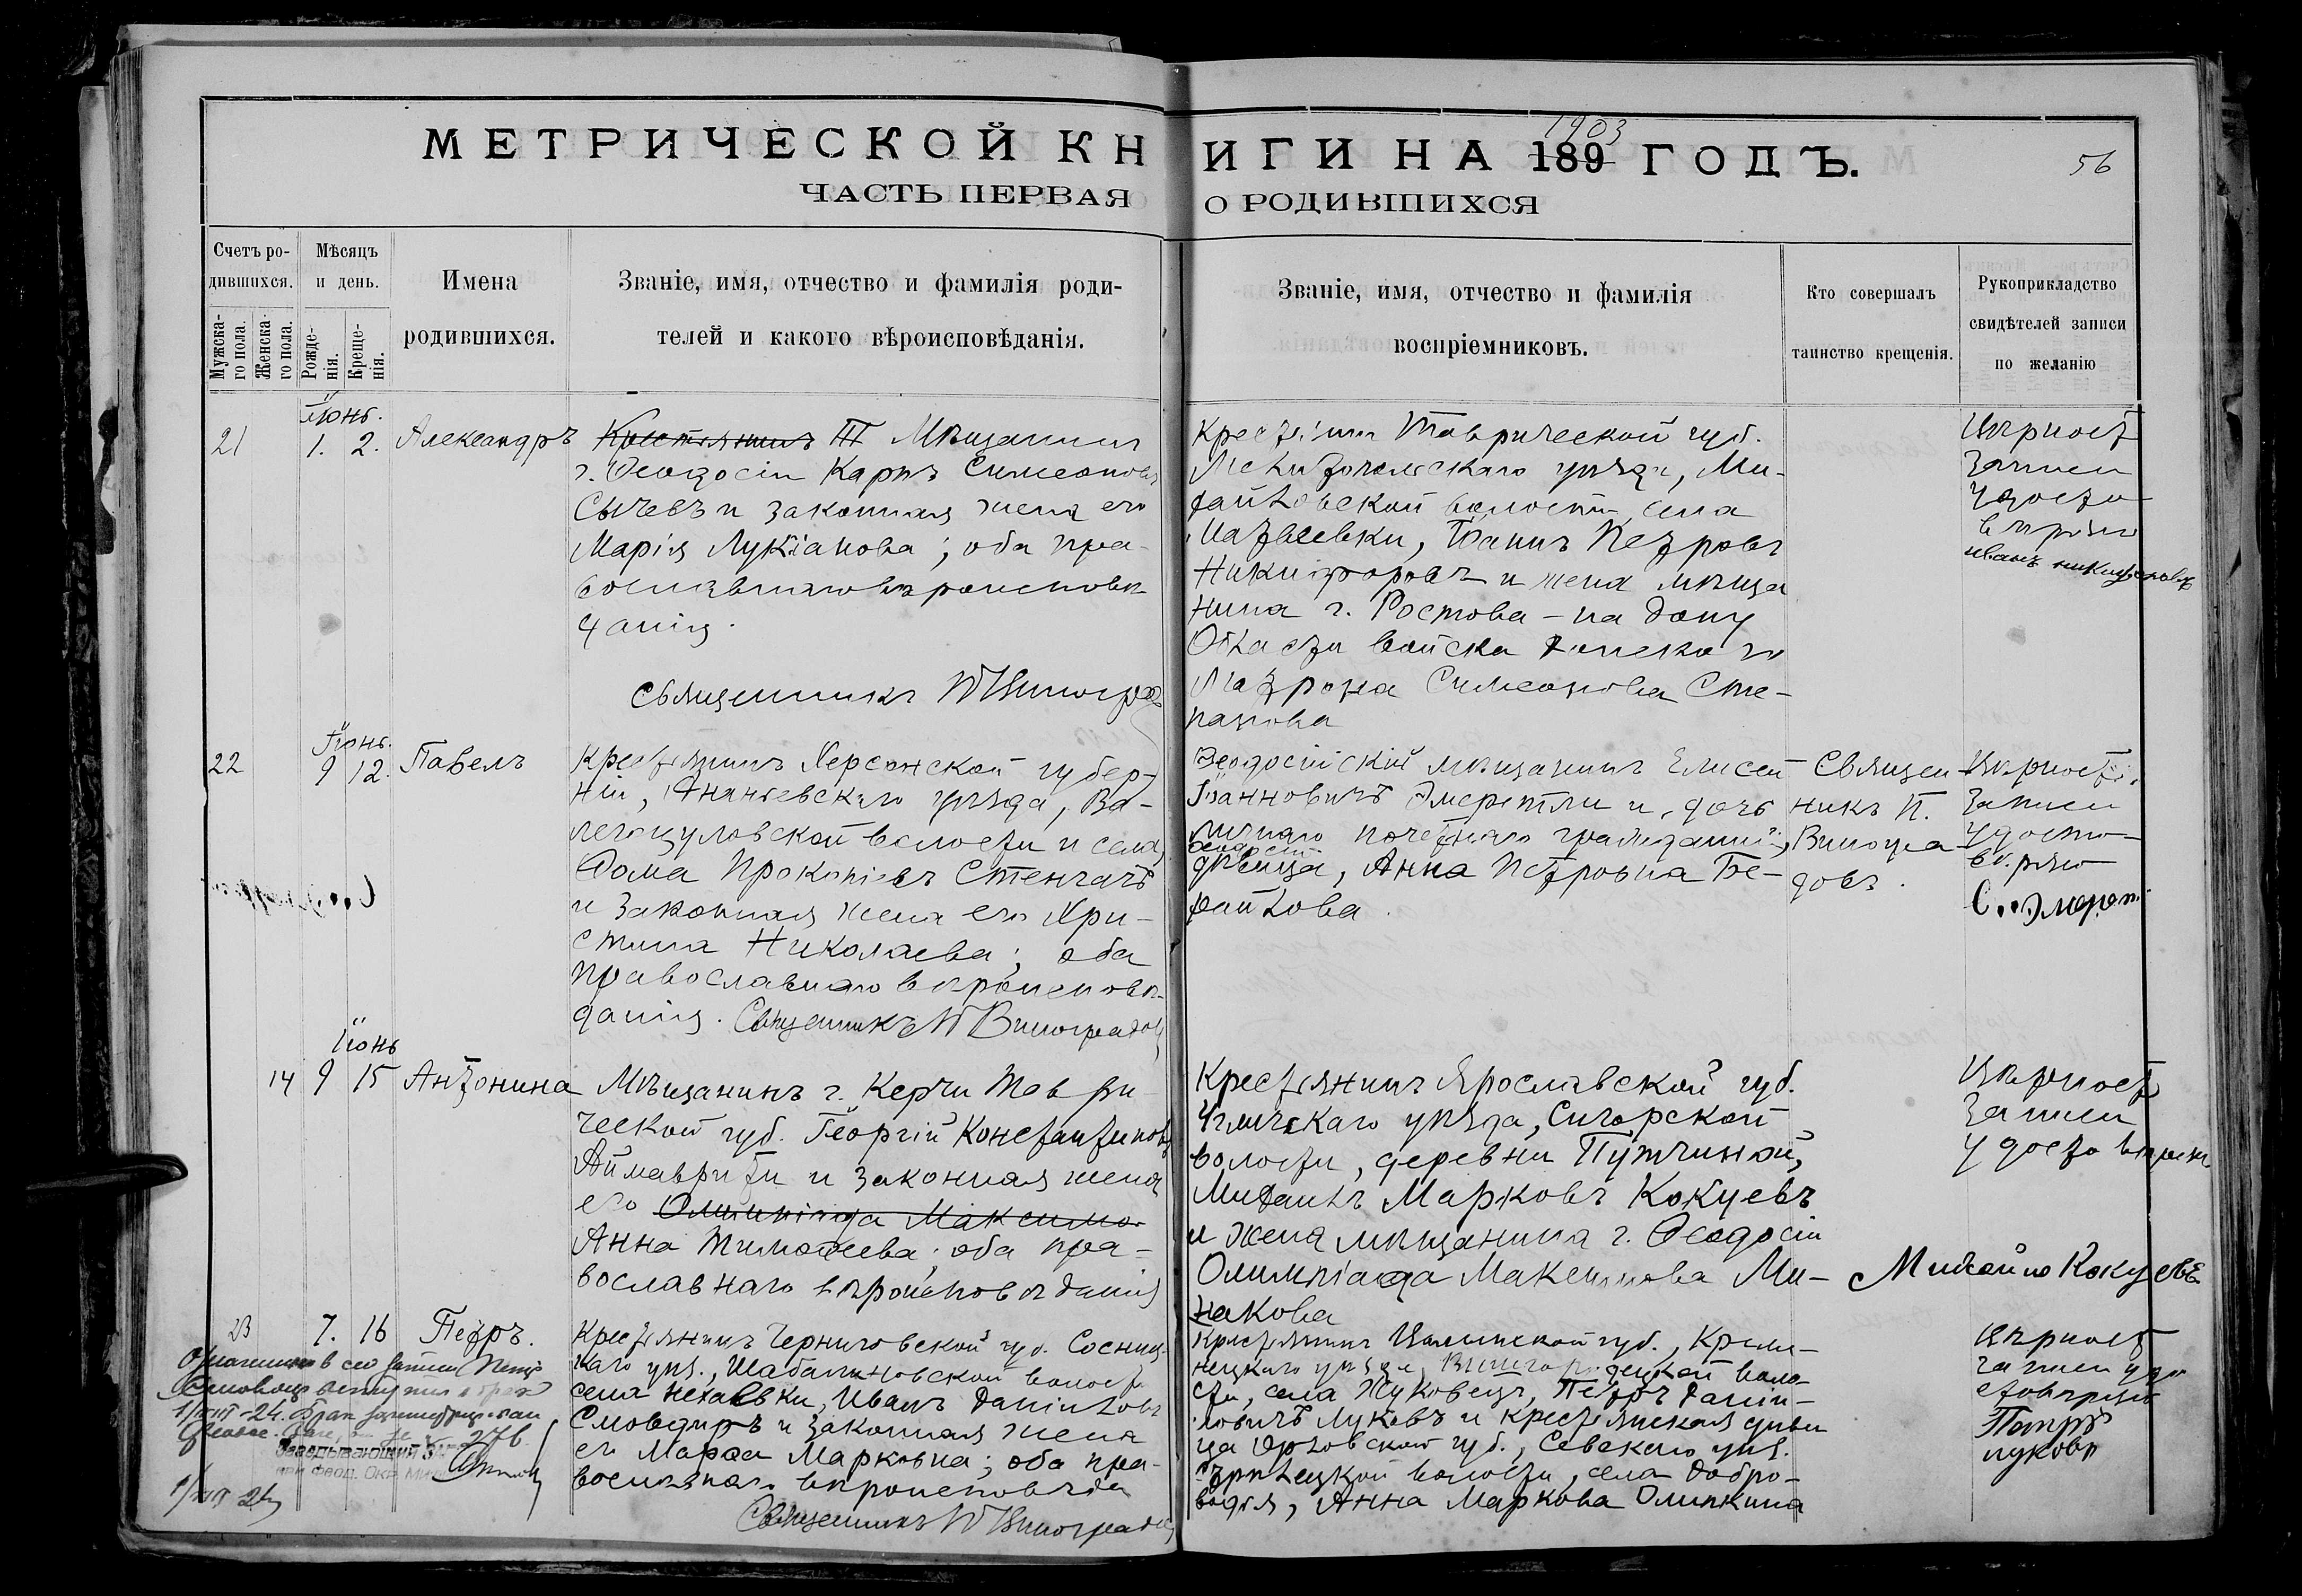 МЕТРИЧЕСКОЙ КНИГИ НА 189 1903 ГОДЪ.
56
ЧАСТЬ ПЕРВАЯ О РОДИВШИХСЯ
Счетъ ро-
дившихся.
Мужска-
го пола.
Женска-
го пола.
Мѣсяцъ
и день.
Рожде-
нія.
Креще-
нія.
Имена
родившихся.
Званіе, имя, отчество и фамилія роди-
телей и какого вѣроисповѣданія.
Званіе, имя, отчество и фамилія
воспріемниковъ.
Кто совершалъ
таинство крещенія.
Рукоприкладство
свидѣтелей записи
по желанію
Іюнь.
21 1. 2. Александръ
Крестьянинъ Мѣщанинъ
г. Ѳеодосіи Карпъ Симеоновъ
Сычевъ и законная жена его
Марія Лукіанова; оба пра-
вославнаго вѣроисповѣ
данія.
Священникъ П Виноградов
Крестьянинъ Таврической губ.
Мелитопольскаго уѣзда, Ми-
хайловской волости, села
Матвеевки, Іоаннъ Петровъ
Никифоровъ и жена мѣща
нина г. Ростова-на Дону
Области войска Донского
Матрона Симеонова Сте-
панова
Вѣрность
записи
удосто
вѣряю
иванъ никифоровъ
Іюнь.
22 9 12. Павелъ
Крестьянинъ Херсонской губер-
ніи, Ананьевскаго уѣзда, Ва-
легоцуловской волости и села,
Ѳома Прокопіевъ Стенгачъ
и законная жена его Хри-
стина Николаева; оба
православнаго вѣроисповѣ-
данія. Священникъ П Виноградовъ
Ѳеодосійскій мѣщанинъ Елисей
Іоанновичъ Эмеретли и дочь
личнаго почетнаго гражданина,
дѣвица, Анна Петровна Бе-
файлова.
Священ-
никъ П.
Виногра-
довъ.
Вѣрность
записи
удосто-
вѣряю
Іюнь
14 9 15 Антонина
Мѣщанинъ г. Керчи Таври
ческой губ. Георгій Константиновъ
Аймаврити и законная жена
его Олимпіада Максимо-
Анна Тимоѳеева; оба пра-
вославнаго вѣроисповѣданія
Крестьянинъ Ярославской губ.
Угличскаго уѣзда, Сигорской
волости, деревни Путчиной,
Михаилъ Марковъ Кокуевъ
и жена мѣщанина г. Ѳеодосіи
Олимпіада Максимова Ми-
накова
Вѣрность
записи
удостовѣряю
Михайло Кокуевъ
23 7. 16 Петръ.
Крестьянинъ Черниговской губ. Сосниц-
каго уѣз., Шабалиновской волости
села Нехаевки, Иванъ Даніиловъ
и законная жена
его Марѳа Марковна; оба пра-
вославнаго вѣроисповѣда
Священникъ П Виноградовъ
Крестьянинъ Волынской губ., Креме-
нецкаго уѣзда, Вышгородецкой воло-
сти, села Жуковецъ, Петръ Даніи-
ловичъ Луковъ и крестьянская дѣви
ца Орловской губ., Севскаго уѣз.
волости, села Добро-
водья, Анна Маркова Олипкина
Вѣрность
записи удо
стовѣряю
Петръ
луковъ